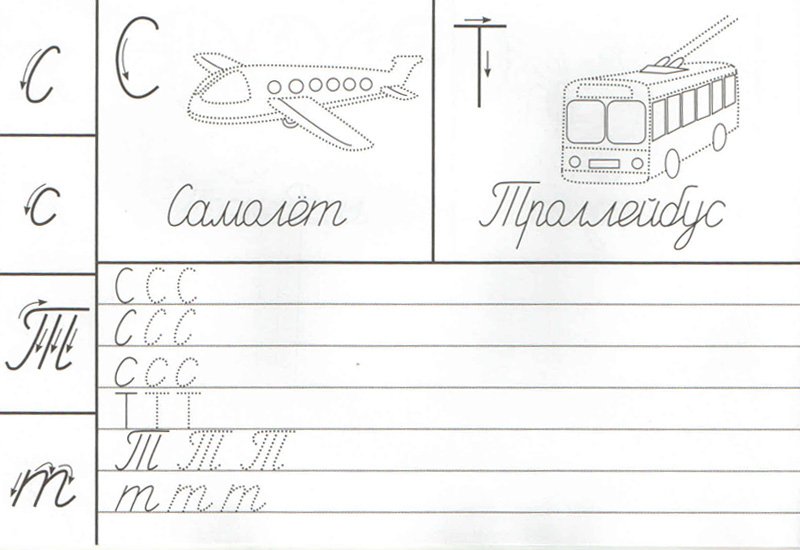 С
С Т
Самолёт Троллейбус
с
С С С
С С С
Т
с с с
Т Т Т
Т Т Т
т
т т т